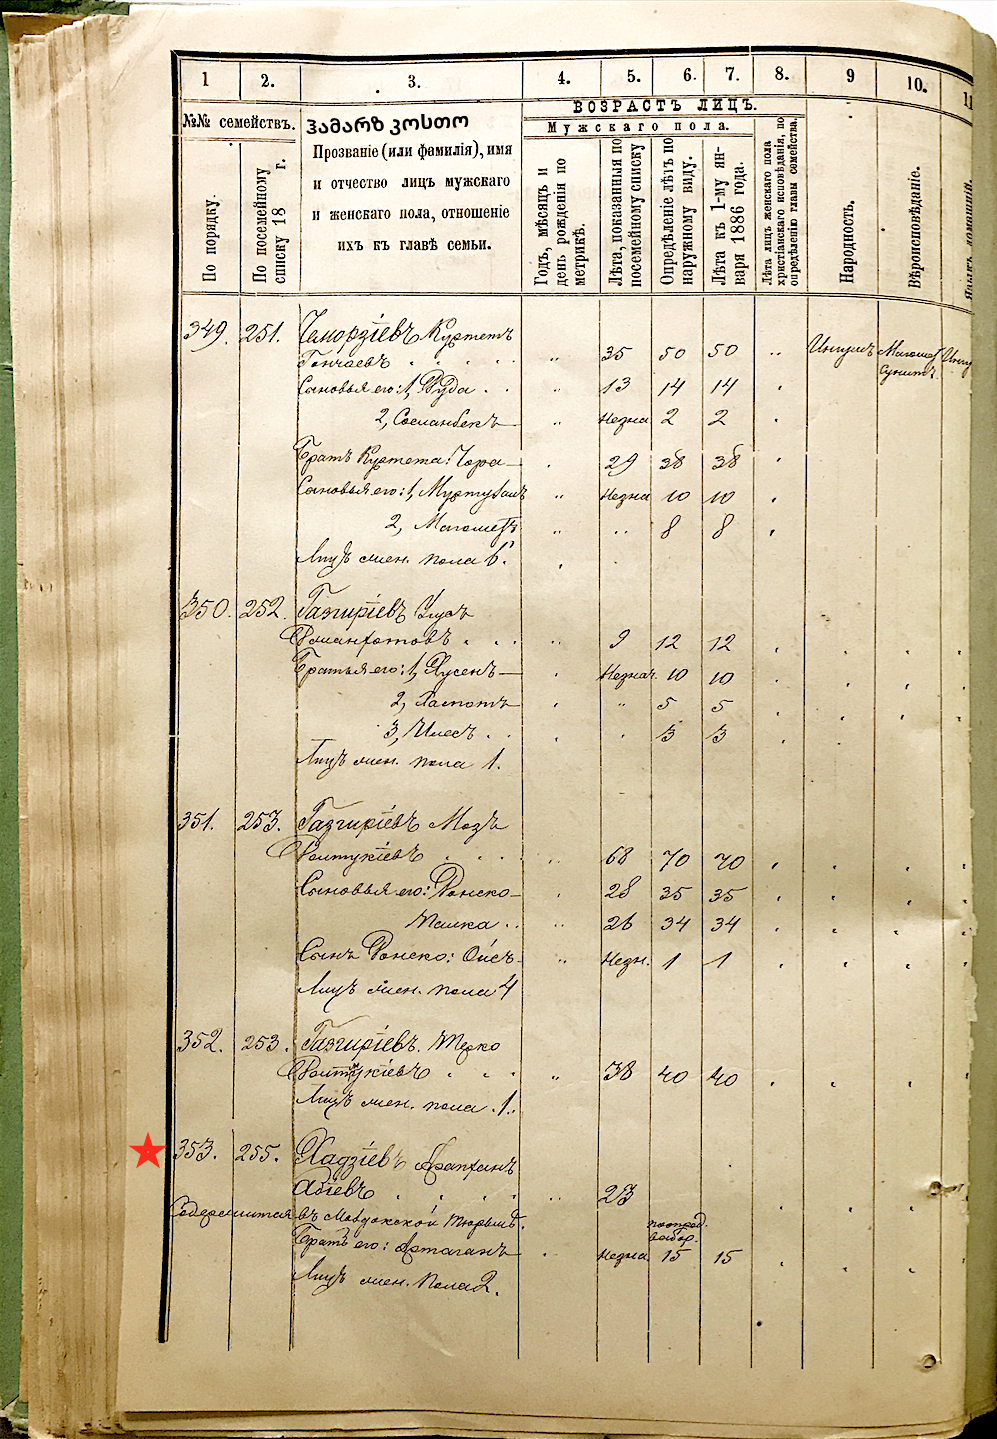 1 2. 3. 4. 5. 6. 7. 8. 9 10. 11
№№ семействъ.
По порядку.
По посемейному списку 18 г.
ჰამარზ კოსთო
Прозваніе (или фамилія), имя
и отчество лицъ мужскаго
и женскаго пола, отношеніе
ихъ къ главѣ семьи.
ВОЗРАСТЪ ЛИЦЪ.
Мужскаго пола.
Годъ, мѣсяцъ и день рожденія по метрикѣ.
Лѣта, показанныя по посемейному списку
Опредѣленіе лѣтъ по наружному виду.
Лѣта къ 1-му января 1886 года.
Лѣта лицъ женскаго пола христіанскаго исповѣданія, по опредѣленію главы семейства.
Народность.
Вѣроисповѣданіе.
Языкъ домашній.
349. 251. Куртетъ
Гончаевъ 35 50 50 Ингушъ
Сановья его: 1, 13 14 14
2, Сосланбекъ Незна 2 2
Братъ Куртета: Чора 29 38 38
Сановья его: 1, Незна 10 10
2, Магометъ 8 8
Лицъ жен. пола 6.
350. 252. Газгиріевъ
9 12 12
Братья его: 1, Хусенъ Незнач. 10 10
2, " 5 5
3, Илесъ 3 3
Лицъ жен. пола 1.
351. 253. Газгиріевъ Мозъ
68 70 70
Сыновья его: Донско 28 35 35
26 34 34
Сынъ Донско: Незн. 1 1
Лицъ жен. пола 4
352. 253. Газгиріевъ.
38 40 40
Лицъ жен. пола 1.
353. 255. Хадзіевъ
Абіевъ 23
Содержится въ Моздокской тюрьмѣ.
Братъ его: Артаганъ Незна 15 15
Лицъ жен. пола 2.